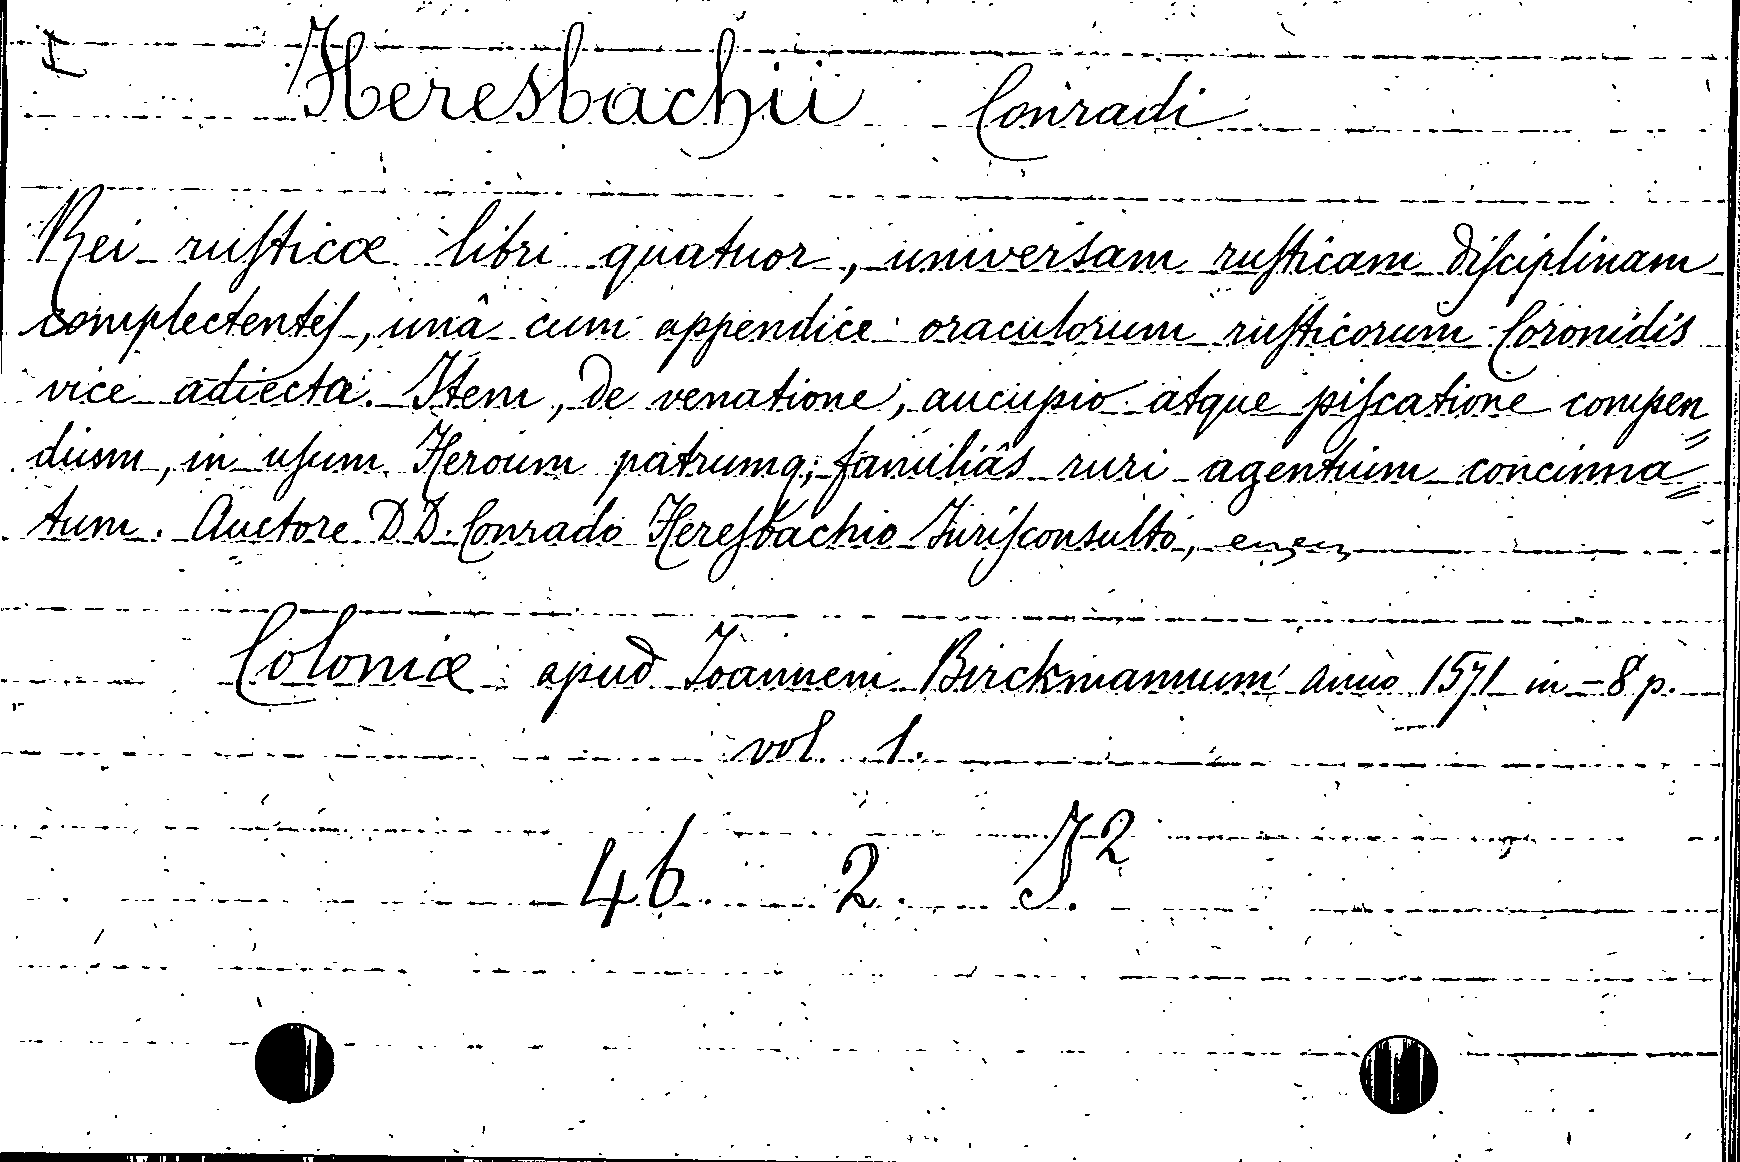 I
Heresbachii Conradi
Rei rusticæ libri quatuor, universam rusticam disciplinam
complectentes, unâ cum appendice oraculorum rusticorum Coronidis
vice adiecta. Item, de venatione, aucupio atque piscatione compen„
dium, in usum Heroum patrumq; familiâs ruri agentium concinna„
tum. Auctore D D. Conrado Heresbachio Jurisconsulto,
Coloniæ apud Joannem Birckmannum anno 1571 in-8 p.
vol. 1.
46. 2. J.²